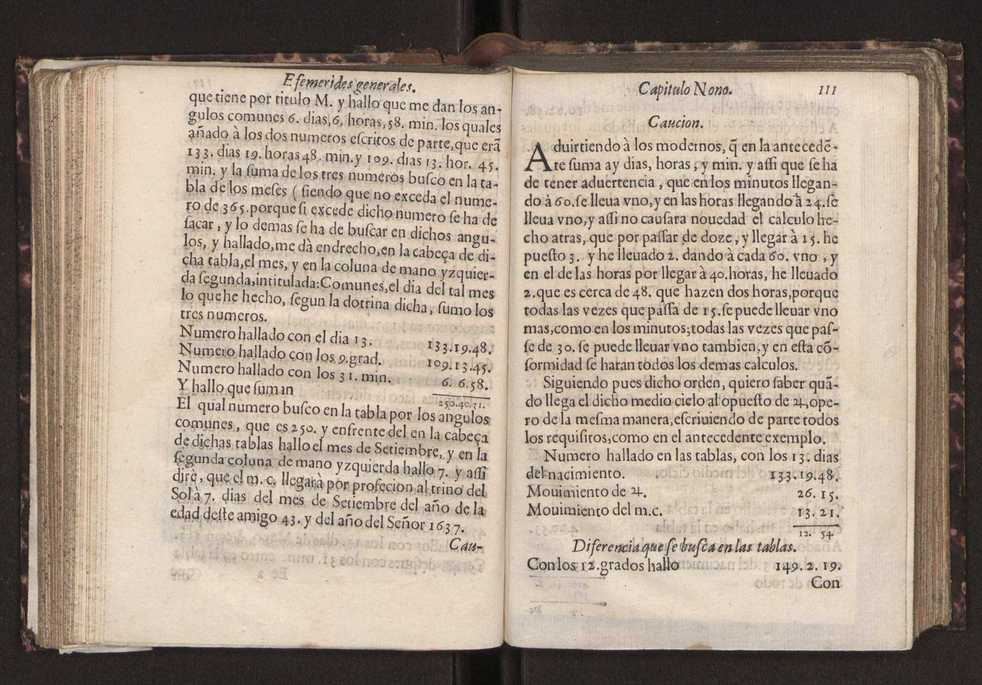 Efemerides generales.
que tiene por titulo M. y hallo que me dan los an-
gulos comunes 6. dias, 6, horas, 58. min. los quales
añado à los dos numeros escritos de parte, que erã
133. dias 19. horas 48. min. y 109. dias 13. hor. 45.
min. y la suma de los tres numeros busco en la ta-
bla de los meses ( siendo que no exceda el nume-
ro de 365. porque si excede dicho numero se ha de
sacar, y lo demas se ha de buscar en dichos angu-
los, y hallado, me dà endrecho, en la cabeça de di-
cha tabla, el mes, y en la coluna de mano yzquier-
da segunda, intitulada: Comunes, el dia del tal mes
lo que he hecho, segun la dotrina dicha, sumo los
tres numeros.
Numero hallado con el dia 13. 133. 19. 48.
Numero hallado con los 9. grad. 109. 13. 45.
Numero hallado con los 31. min. 6. 6. 58.
Y hallo que suman 250. 40. 31.
El qual numero busco en la tabla por los angulos
comunes, que es 250. y enfrente del en la cabeça
de dichas tablas hallo el mes de Setiembre, y en la
segunda coluna de mano yzquierda hallo 7. y assi
dirè, que el m. c. llegarà por profecion al trino del
Sol à 7. dias del mes de Setiembre del año de la
edad deste amigo 43. y del año del Señor 1637.
Cau-
Capitulo Nono. 111
Caucion.
Aduirtiendo à los modernos, q̃ en la antecedẽ-
te suma ay dias, horas, y min. y assi que se ha
de tener aduertencia, que en los minutos llegan-
do à 60. se lleua vno, y en las horas llegando à 24. se
lleua vno, y assi no causara nouedad el calculo he-
cho atras, que por passar de doze, y llegar à 15. he
puesto 3. y he lleuado 2. dando à cada 60. vno, y
en el de las horas por llegar à 40. horas, he lleuado
2. que es cerca de 48. que hazen dos horas, porque
todas las vezes que passa de 15. se puede lleuar vno
mas, como en los minutos; todas las vezes que pas-
se de 30. se puede lleuar vno tambien, y en esta cõ-
formidad se haran todos los demas calculos.
Siguiendo pues dicho orden, quiero saber quã-
do llega el dicho medio cielo al opuesto de ♃, ope-
ro de la mesma manera, escriuiendo de parte todos
los requisitos, como en el antecedente exemplo.
Numero hallado en las tablas, con los 13. dias
del nacimiento. 133. 19. 48.
Mouimiento de ♃. 26. 15.
Mouimiento del m. c. 13. 21.
12. 54
Diferencia que se busca en las tablas.
Con los 12. grados hallo 149. 2. 19.
Con